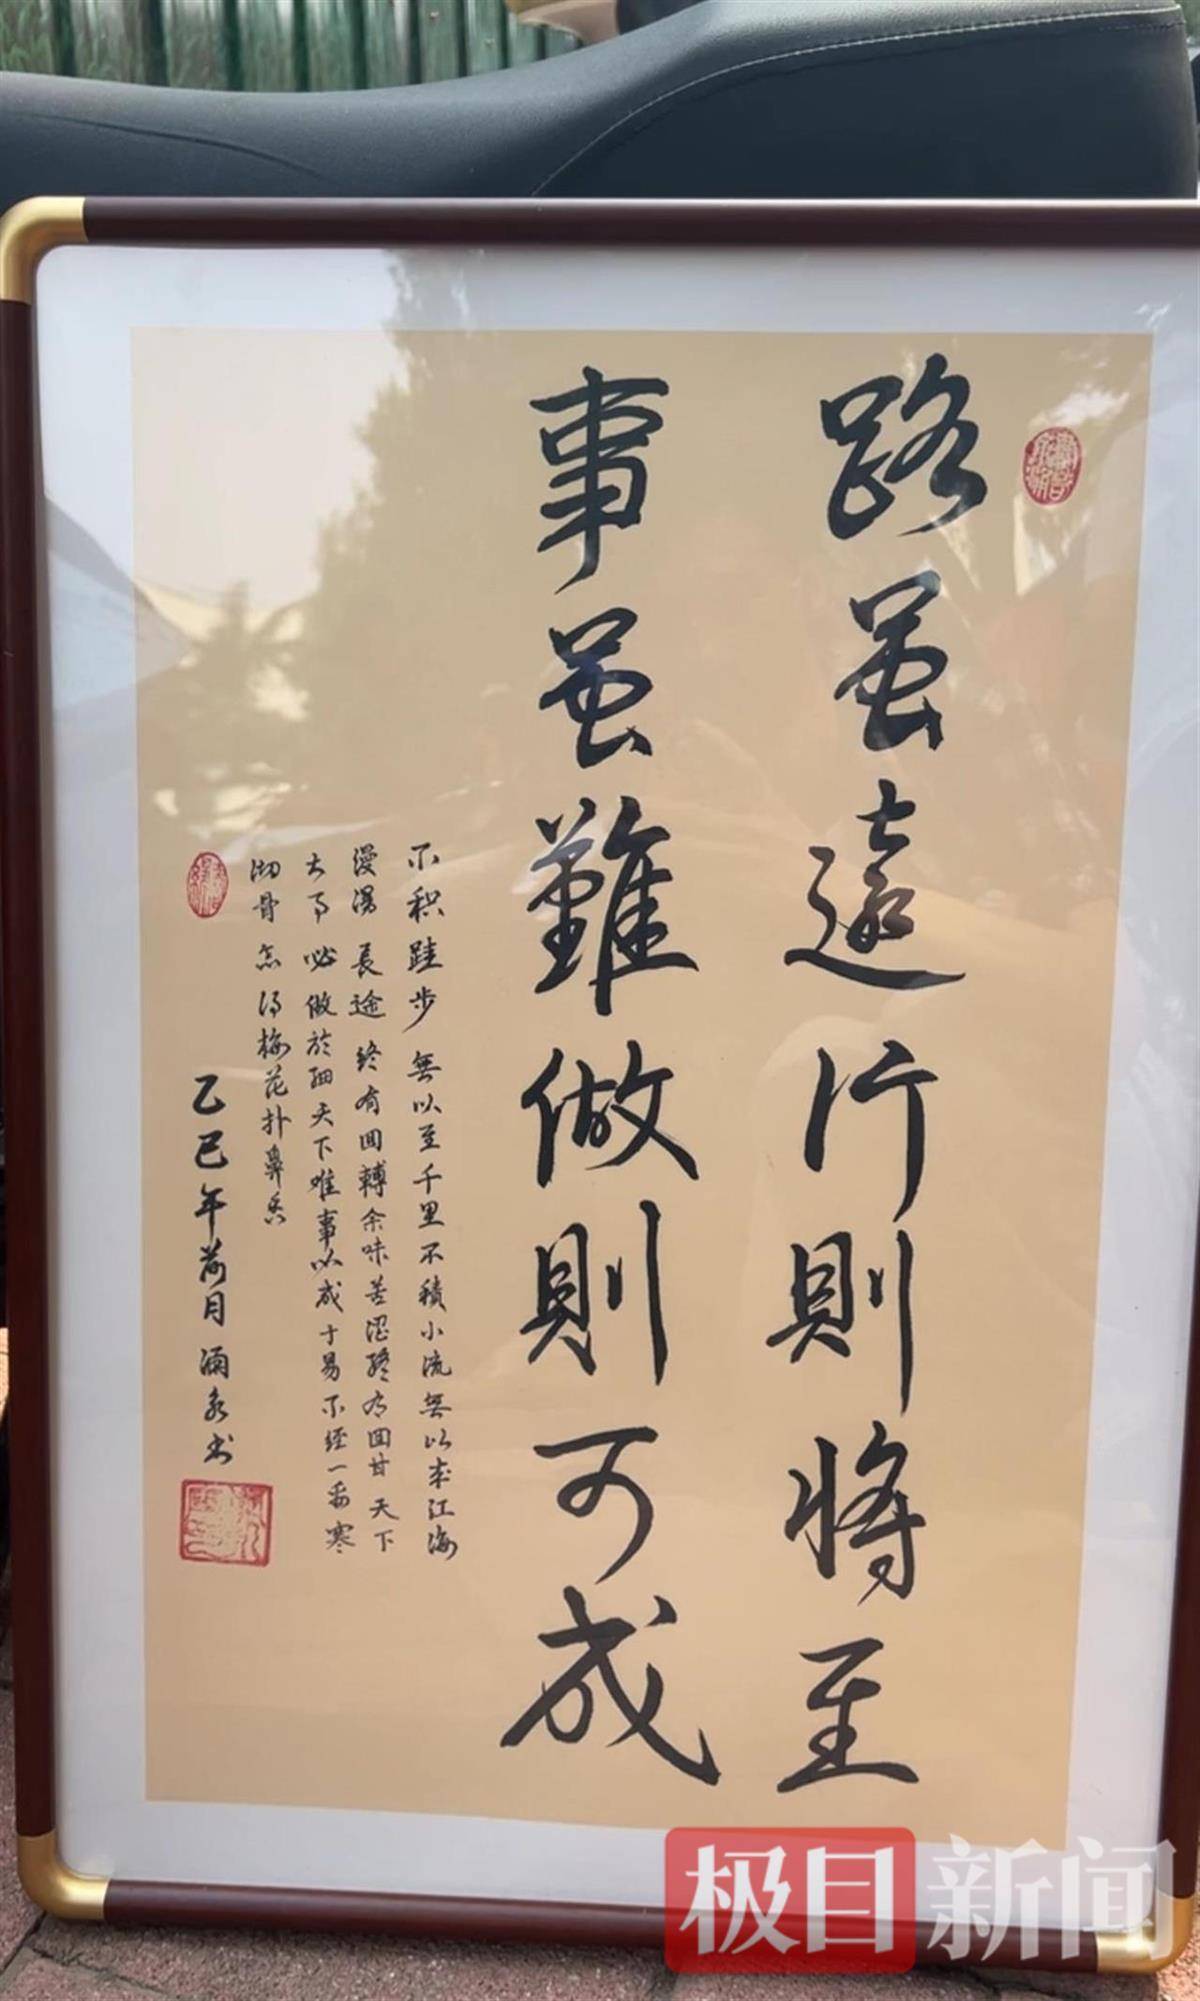 路虽遠行則將至
事虽難做則可成
不积跬步無以至千里不積小流無以成江海
漫漫長途終有回轉余味苦涩終有回甘天下
大事必做於细天下难事以成于易不经一番寒
彻骨怎得梅花扑鼻香
乙巳年荷月涵永书
极目新闻